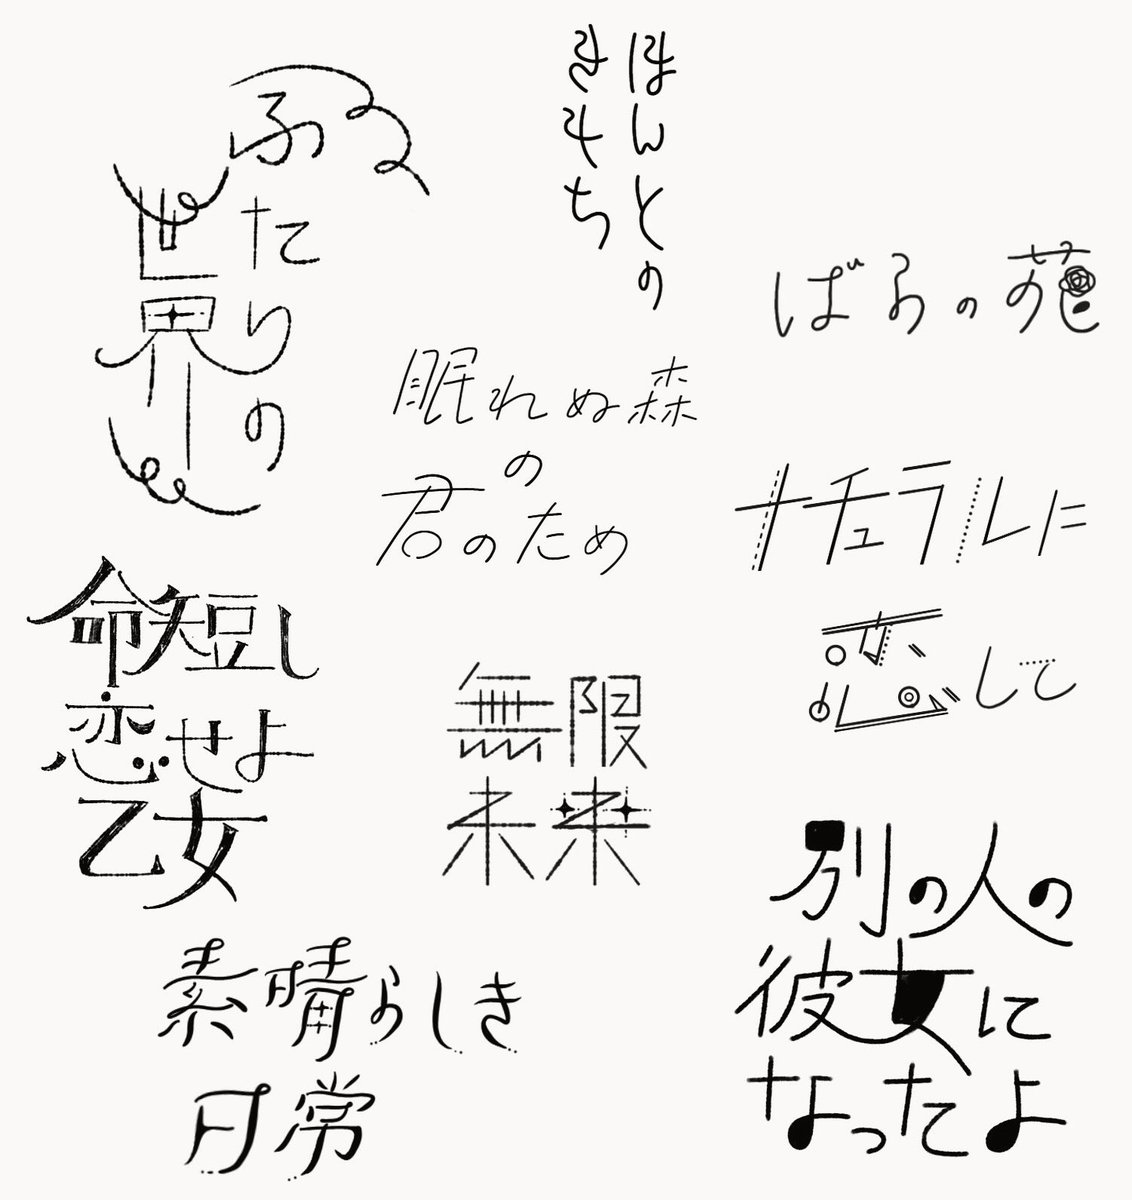 ふたりの
世界
ほんとの
きもち
ばらの苑
眠れぬ森
の
君のため
ナチュラルに
恋して
命短し
恋せよ
乙女
無限
未来
別の人の
彼女に
なったよ
素晴らしき
日常